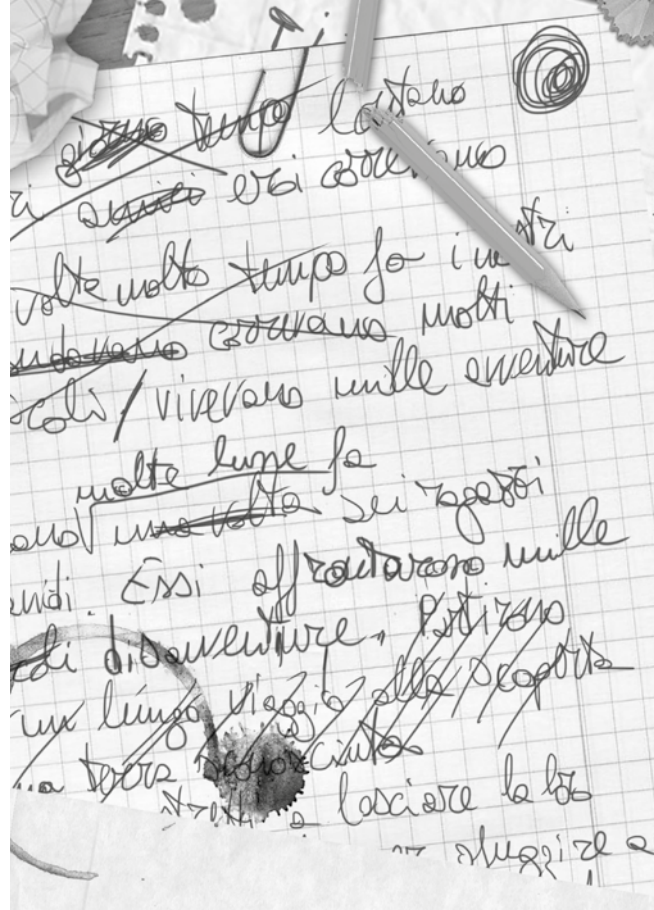 giorno tempo lontano
ri amici eroi correvano
volte molto tempo fa i stri
andavano correvano molti
icoli / vivevano mille avventure
molte lune fa
ano una volta sei ragazzi
endi. Essi affrontarono mille
di disavventure. Partirono
un lungo viaggio alla scoperta
a terra sconosciuta
a lasciare la loro
sfuggire a